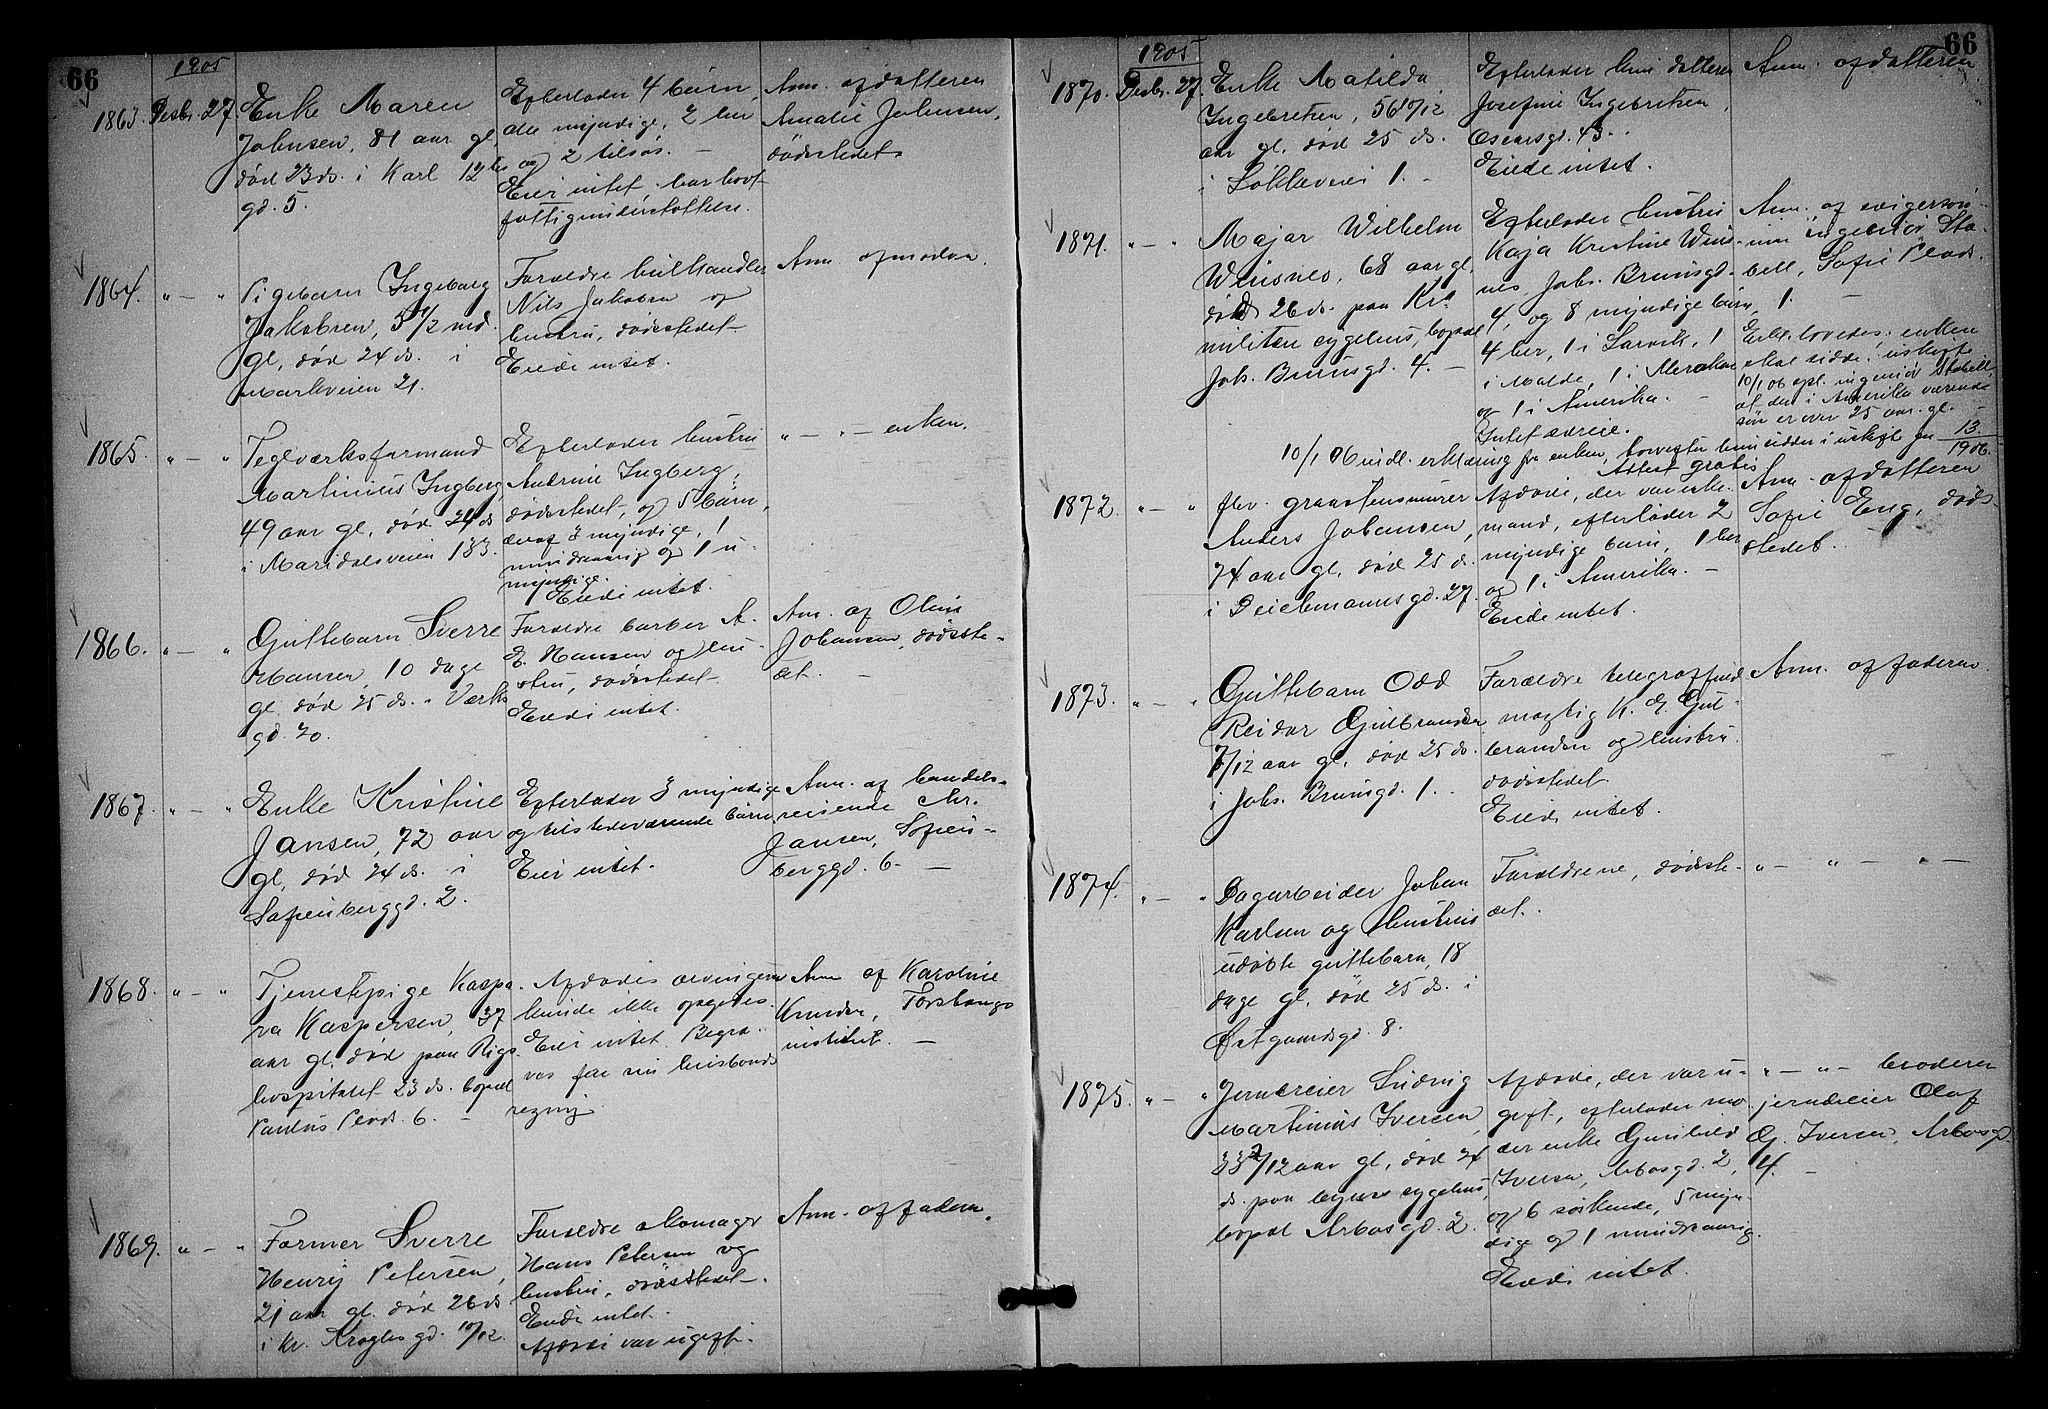 66
1905
1863. Desbr. 27.
Enke Maren
Johnsen, 81 aar gl,
død 23 ds. i Karl 12te
gd. 5.
Efterlader 4 børn,
alle myndige, 2 her
og 2 tilsøs. —
Eier intet. har havt
fattigunderstøttelse.
Anm. af datteren
Amalie Johnsen,
dødsstedet.
1864. " — "
Pigebarn Ingeborg
Jakobsen, 5 1/2 md.
gl, død 24 ds. i
Markveien 21.
Forældre hulhandler
Nils Jakobsen og
hustru, dødsstedet —
Eiede intet.
Anm. af moderen.
1865. " — "
Teglværksformand
Martinius Ingberg,
49 aar gl, død 24 ds
i Maridalsveien 183.
Efterlader hustru
Andrine Ingberg,
dødsstedet, og 5 børn,
deraf 3 myndige, 1
mindreaarig og 1 u-
myndige.
Eiede intet.
" — " — enken.
1866. " — "
Guttebarn Sverre
Hansen, 10 dage
gl. død 25 ds. i Værks
gd. 20.
Forældre barber A.
E. Hansen og hu-
stru, dødsstedet —
Eiede intet.
Anm. af Olein
Johansen, dødsste-
det. —
1867. " — "
Enke Kristine
Jansen, 72 aar
gl, død 24 ds. i
Sofienberggd. 2.
Efterlader 3 myndige
og tilstedeværende børn.
Eier intet.
Anm. af handels-
reisende Chr.
Jansen, Sofien-
berggd. 6. —
1868. " — "
Tjenestepige Kaspa-
ra Kaspersen, 37
aar gl, død paa Rigs-
hospitalet 23 ds. bopæl
Paulus Plads 6. —
Afdødes arvinger
kunde ikke opgives.
Eier intet. Begra-
ves for sin husbonds
regning.
Anm af Karoline
Knudsen, Torshaugs
institut. —
1869. " — "
Former Sverre
Henry Petersen,
21 aar gl. død 26 ds
i Kr. Kroghs gd. 10/12.
Forældre skomager
Hans Petersen og
hustru, dødsstedet —.
Eiede intet.
Afdøde var ugift.
Anm. af faderen.
66
1905
1870. Desbr. 27.
Enke Matilda
Ingebretsen, 56 10/12
aar gl. død 25 ds.
i Sökkeveien 1. —
Efterlader kun datteren
Josefine Ingebretsen,
Oscarsgd. 43.
Eiede intet.
Anm. af datteren
1871. " — "
Major Wilhelm
Winsnes, 68 aar gl,
død 26 ds. paa Kra
militære sygehus, bopæl
Johs. Brunsgd. 4. —
Efterlader hustru
Kaja Kristine Wins-
nes, Johs. Brunsgd.
4, og 8 myndige børn,
4 her, 1 i Larvik, 1
i Molde, 1 i Meraker
og 1 i Amerika. —
Intet særeie.
Anm. af svigersøn-
nen ingeniør Sta-
bell, Sofie Plads
1. —
Erkl. lovedes: enken
skal sidde i uskifte
10/1 06 opl. ingeniør Stabell,
at den i Amerika værende
søn er over 25 aar gl. —
10/1 06 indl. erklæring fra enken, hvorefter hun sidder i uskiftet bo 13/1906.
Attest gratis
1872. " — "
fhv. graastensmurer
Anders Johansen,
74 aar gl, død 25 ds.
i Deichmannsgd. 27.
Afdøde, der var enke-
mand, efterlader 2
myndige børn, 1 her
og 1 i Amerika. —
Eiede intet.
Anm. af datteren
Sofie Eng, døds-
stedet.
1873. " — "
Guttebarn Odd
Reidar Gulbrandsen
7/12 aar gl. død 25 ds.
i Johs. Brunsgd. 1.
Forældre telegraffuld-
mægtig K. E. Gul-
brandsen og hustru.
dødsstedet.
Eiede intet.
Anm. af faderen.
1874. " — "
Dagarbeider Johan
Karlsen og Hustrus
udøbte guttebarn, 18
dage gl. død 25 ds. i
Østgaardsgd. 8.
Forældrene, dødsste-
det.
" — " — " —
1875. " — "
Jerndreier Ludvig
Martinius Iversen,
33 2/12 aar gl, død 24
ds. paa byens sygehus,
bopæl Arbosgd. 2.
Afdøde, der var u-
gift, efterlader mo-
der enke Gunhild
Iversen, Arbosgd. 2,
og 6 søskende, 5 myn-
dige og 1 mindreaarig.
Eiede intet.
" — " — broderen
jerndreier Olaf
G. Iversen, Arbosgd.
4. —